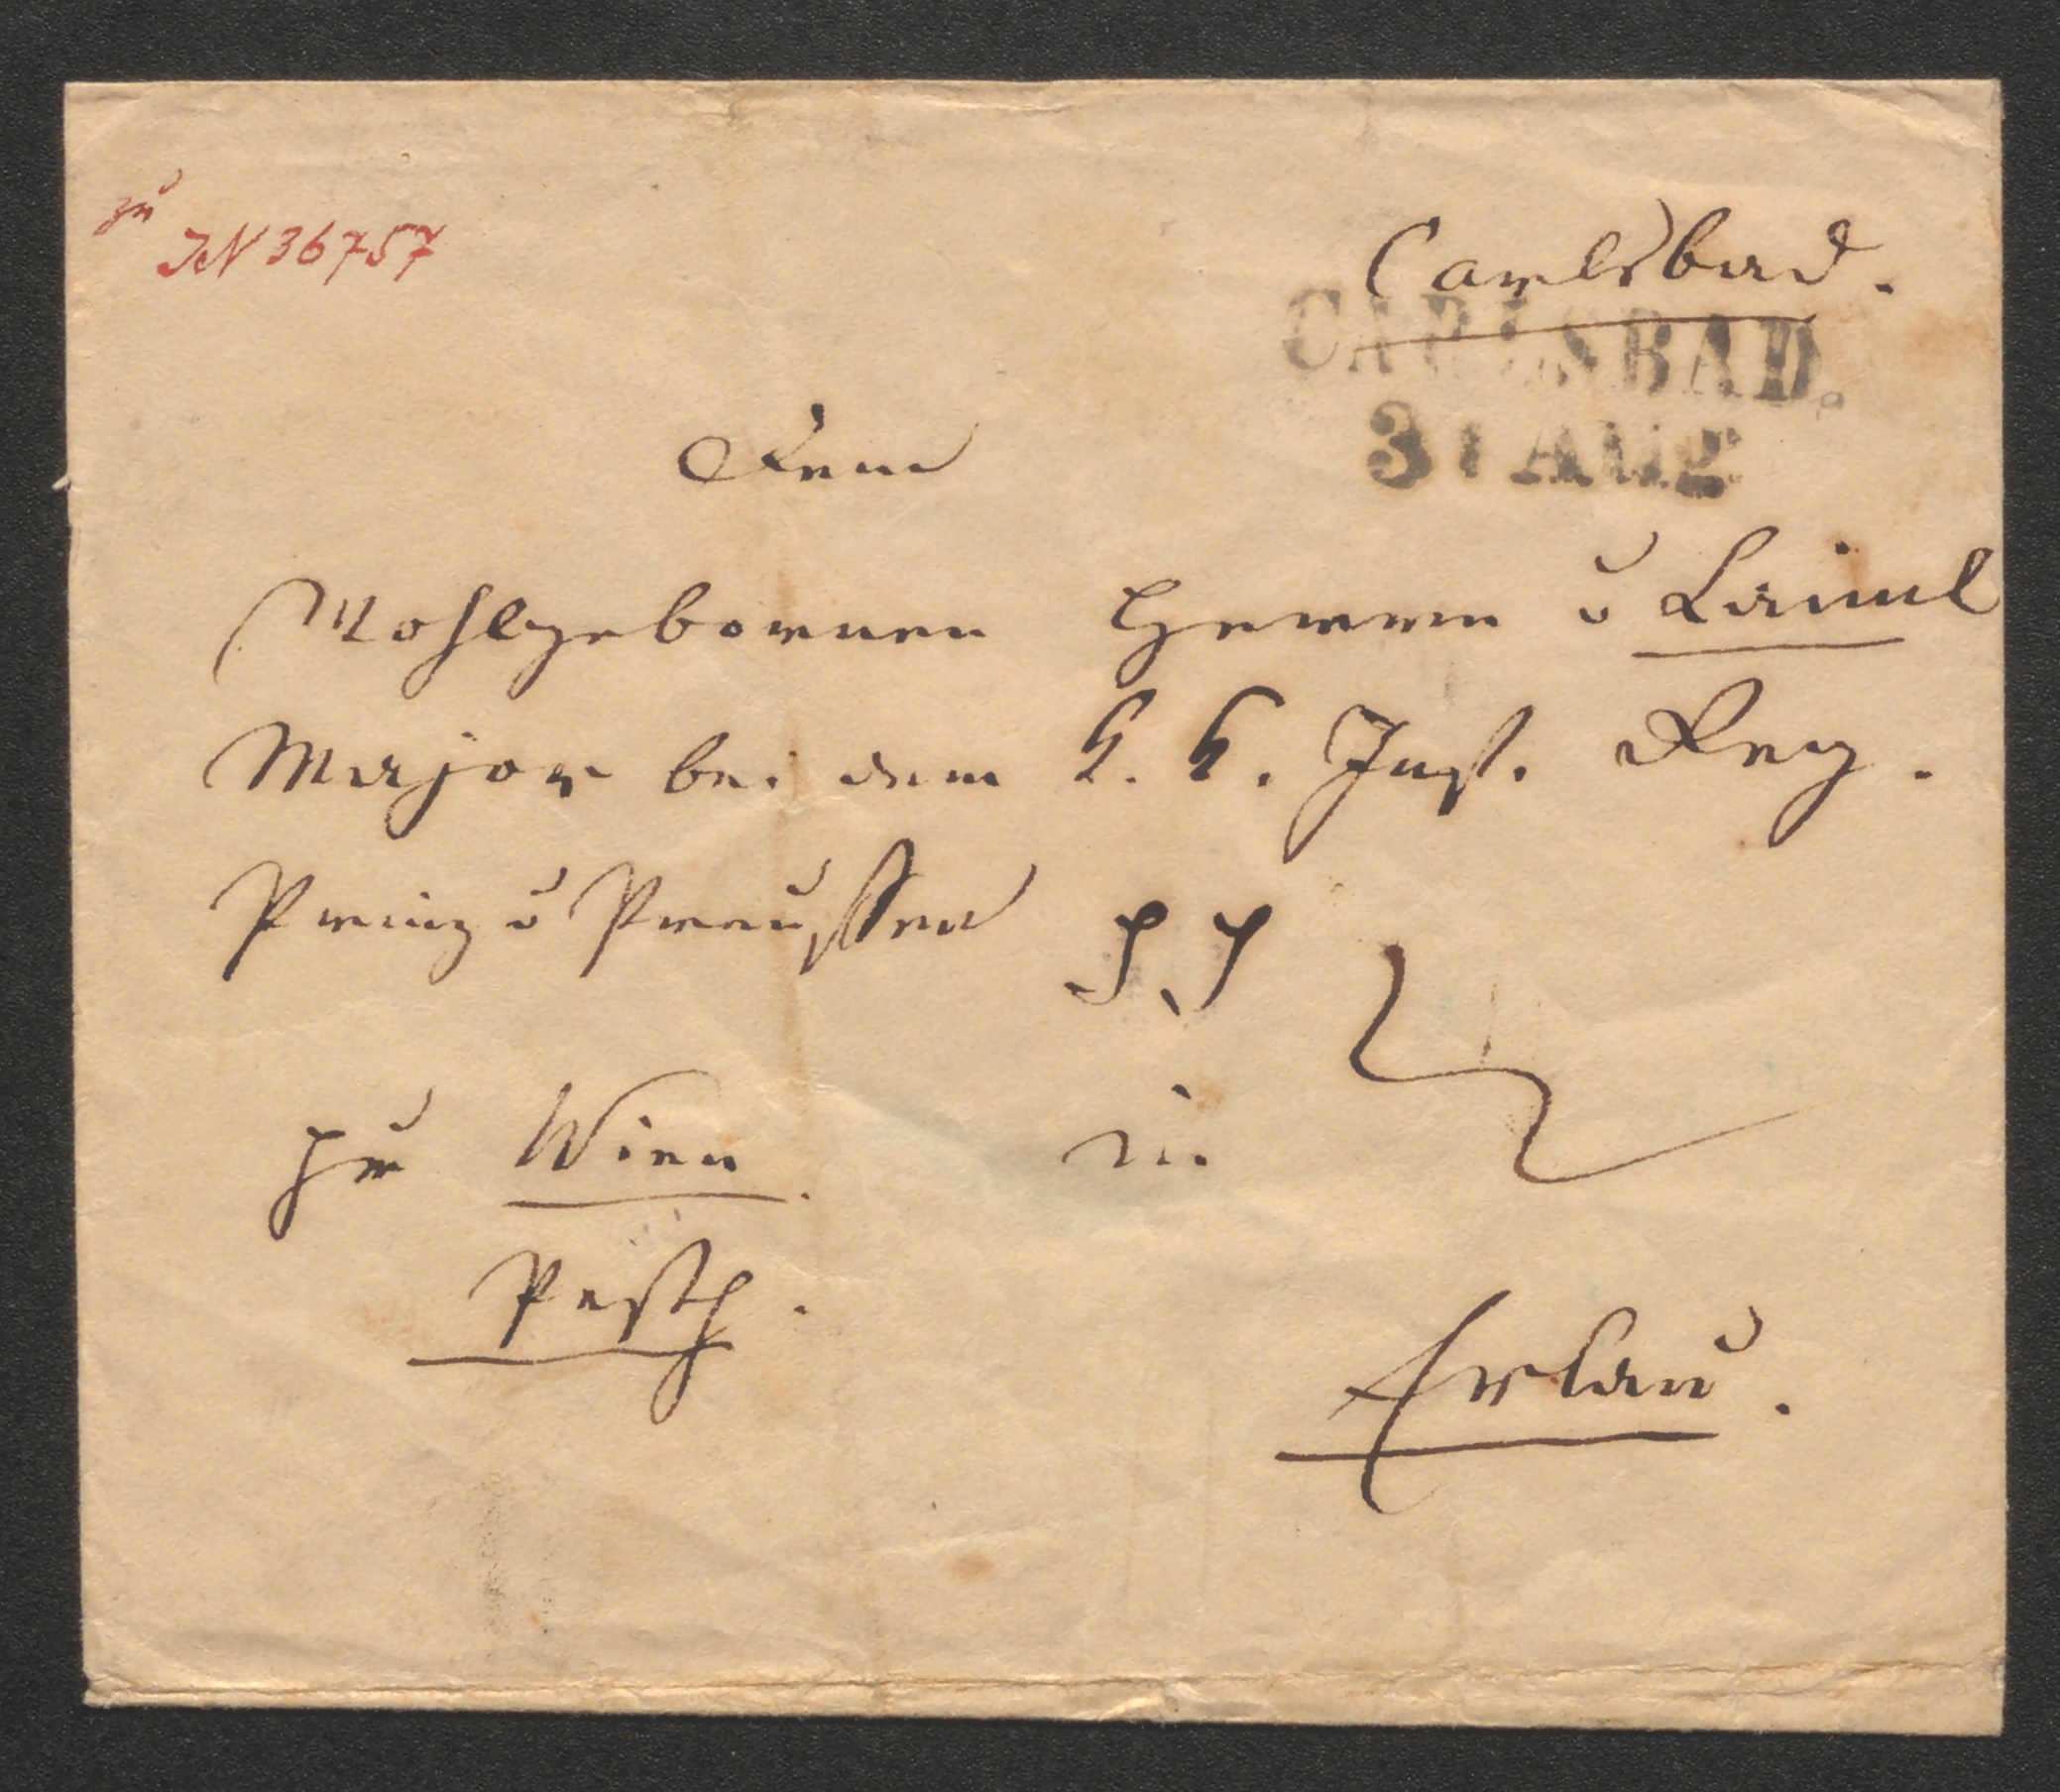 zu
IN 36757
Carlsbad.
CARLSBAD.
31 AUG
Dem
Wohlgebornen Herrn v
Major bei dem k. k. Inft. Reg.
Prinz v Preußen
per Wien. in
Pesth.
Erlau.